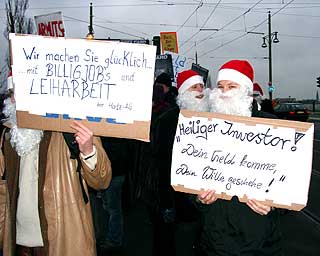 Wir machen Sie glücklich...
...mit BILLIGJOBS und
LEIHARBEIT
Ihr Hartz-AG
"Heiliger Investor!
Dein Geld komme,
Dein Wille geschehe!"